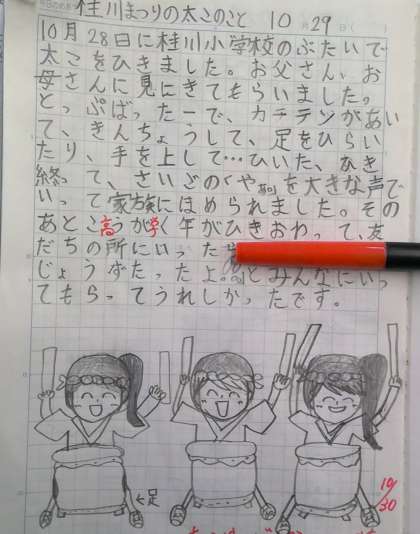 桂川まつりの太このこと 10月29日
10月28日に桂川小学校のぶたいで
太こをひきました。お父さん、お
母さんに見にきてもらいました。
とっぷばったーで、カーテンがあい
て、きんちょうして、足をひらい
たり、手を上して…ひいた、ひき
終って、さいごの「や
を大きな声で
いって家族にほめられました。その
あとこうが
く年がひきおわって、友
高 学
だちの所にいったら
じょうずだったよ。
とみんなにいっ
てもらってうれしかったです。
←足
10/30